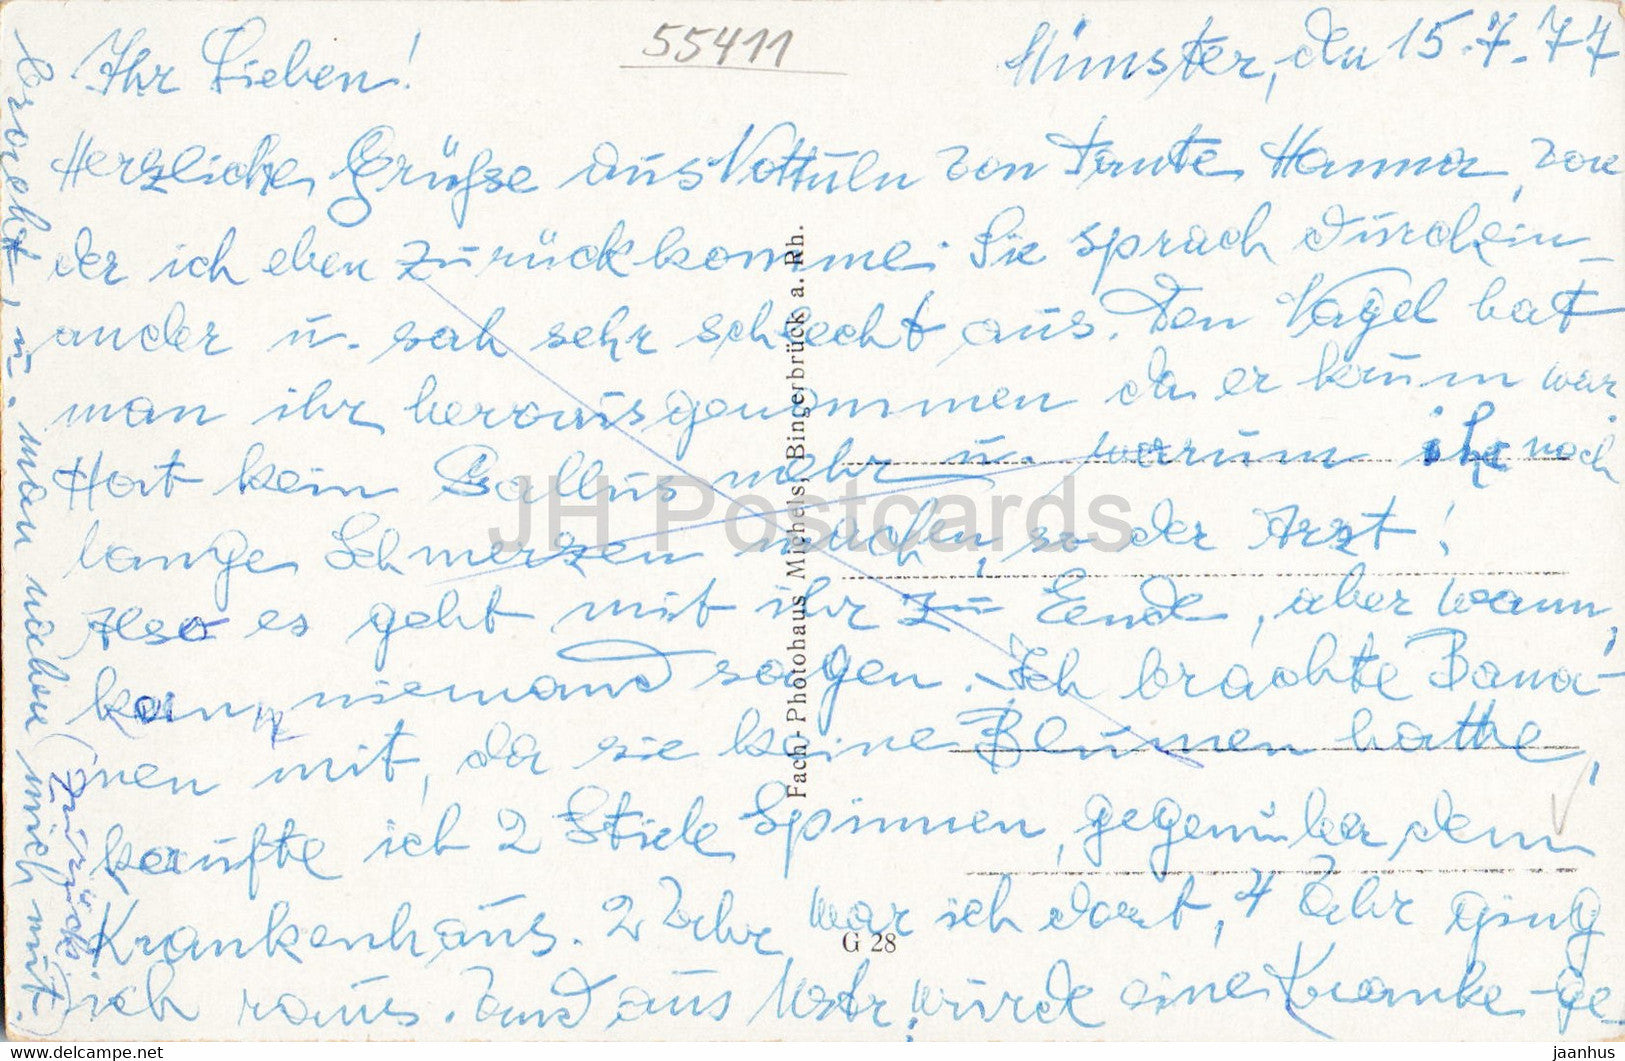 55411
Münster, den 15.7.77
Ihr Lieben!
Herzliche Grüße aus Nottuln von Tante Hanna, von
der ich eben zurückkomme. Sie sprach durchein-
ander u. sah sehr schlecht aus. Den Nagel hat
man ihr herausgenommen da er krum war
Hat kein Gallus mehr u. warum ihr noch
lange Schmerzen machen, so der Arzt!
Also es geht mit ihr zu Ende, aber wann,
kann niemand sagen. Ich brachte Bana-
nen mit, da sie keine Blumen hatte,
kaufte ich 2 Stiele Spinnen, gegenüber dem
Krankenhaus. 2 Uhr war ich dort, 4 Uhr ging
ich raus. Und aus wurde eine Kranke ge-
bracht, u. man nahm mich mit.
(zurück.)
Fach-Photohaus Michels, Bingerbrück a. Rh.
G 28
JH Postcards
www.delcampe.net
jaanhus